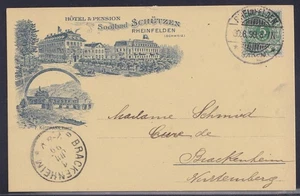 HÔTEL & PENSION
Soolbad SCHÜTZEN
RHEINFELDEN
(SCHWEIZ)
RHEINFELDEN
Madame Schmid
Cure de
Brackenheim
Würtemberg
BRACKENHEIM